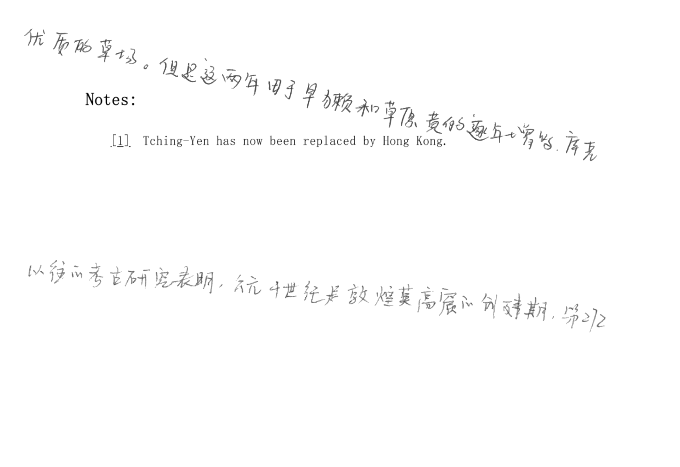 优质的草场。但是这两年由于旱獭和草原黄的逐年增多.库克
Notes:
[1] Tching-Yen has now been replaced by Hong Kong.
以往的考古研究表明,公元4世纪是敦煌莫高窟的创建期,第272